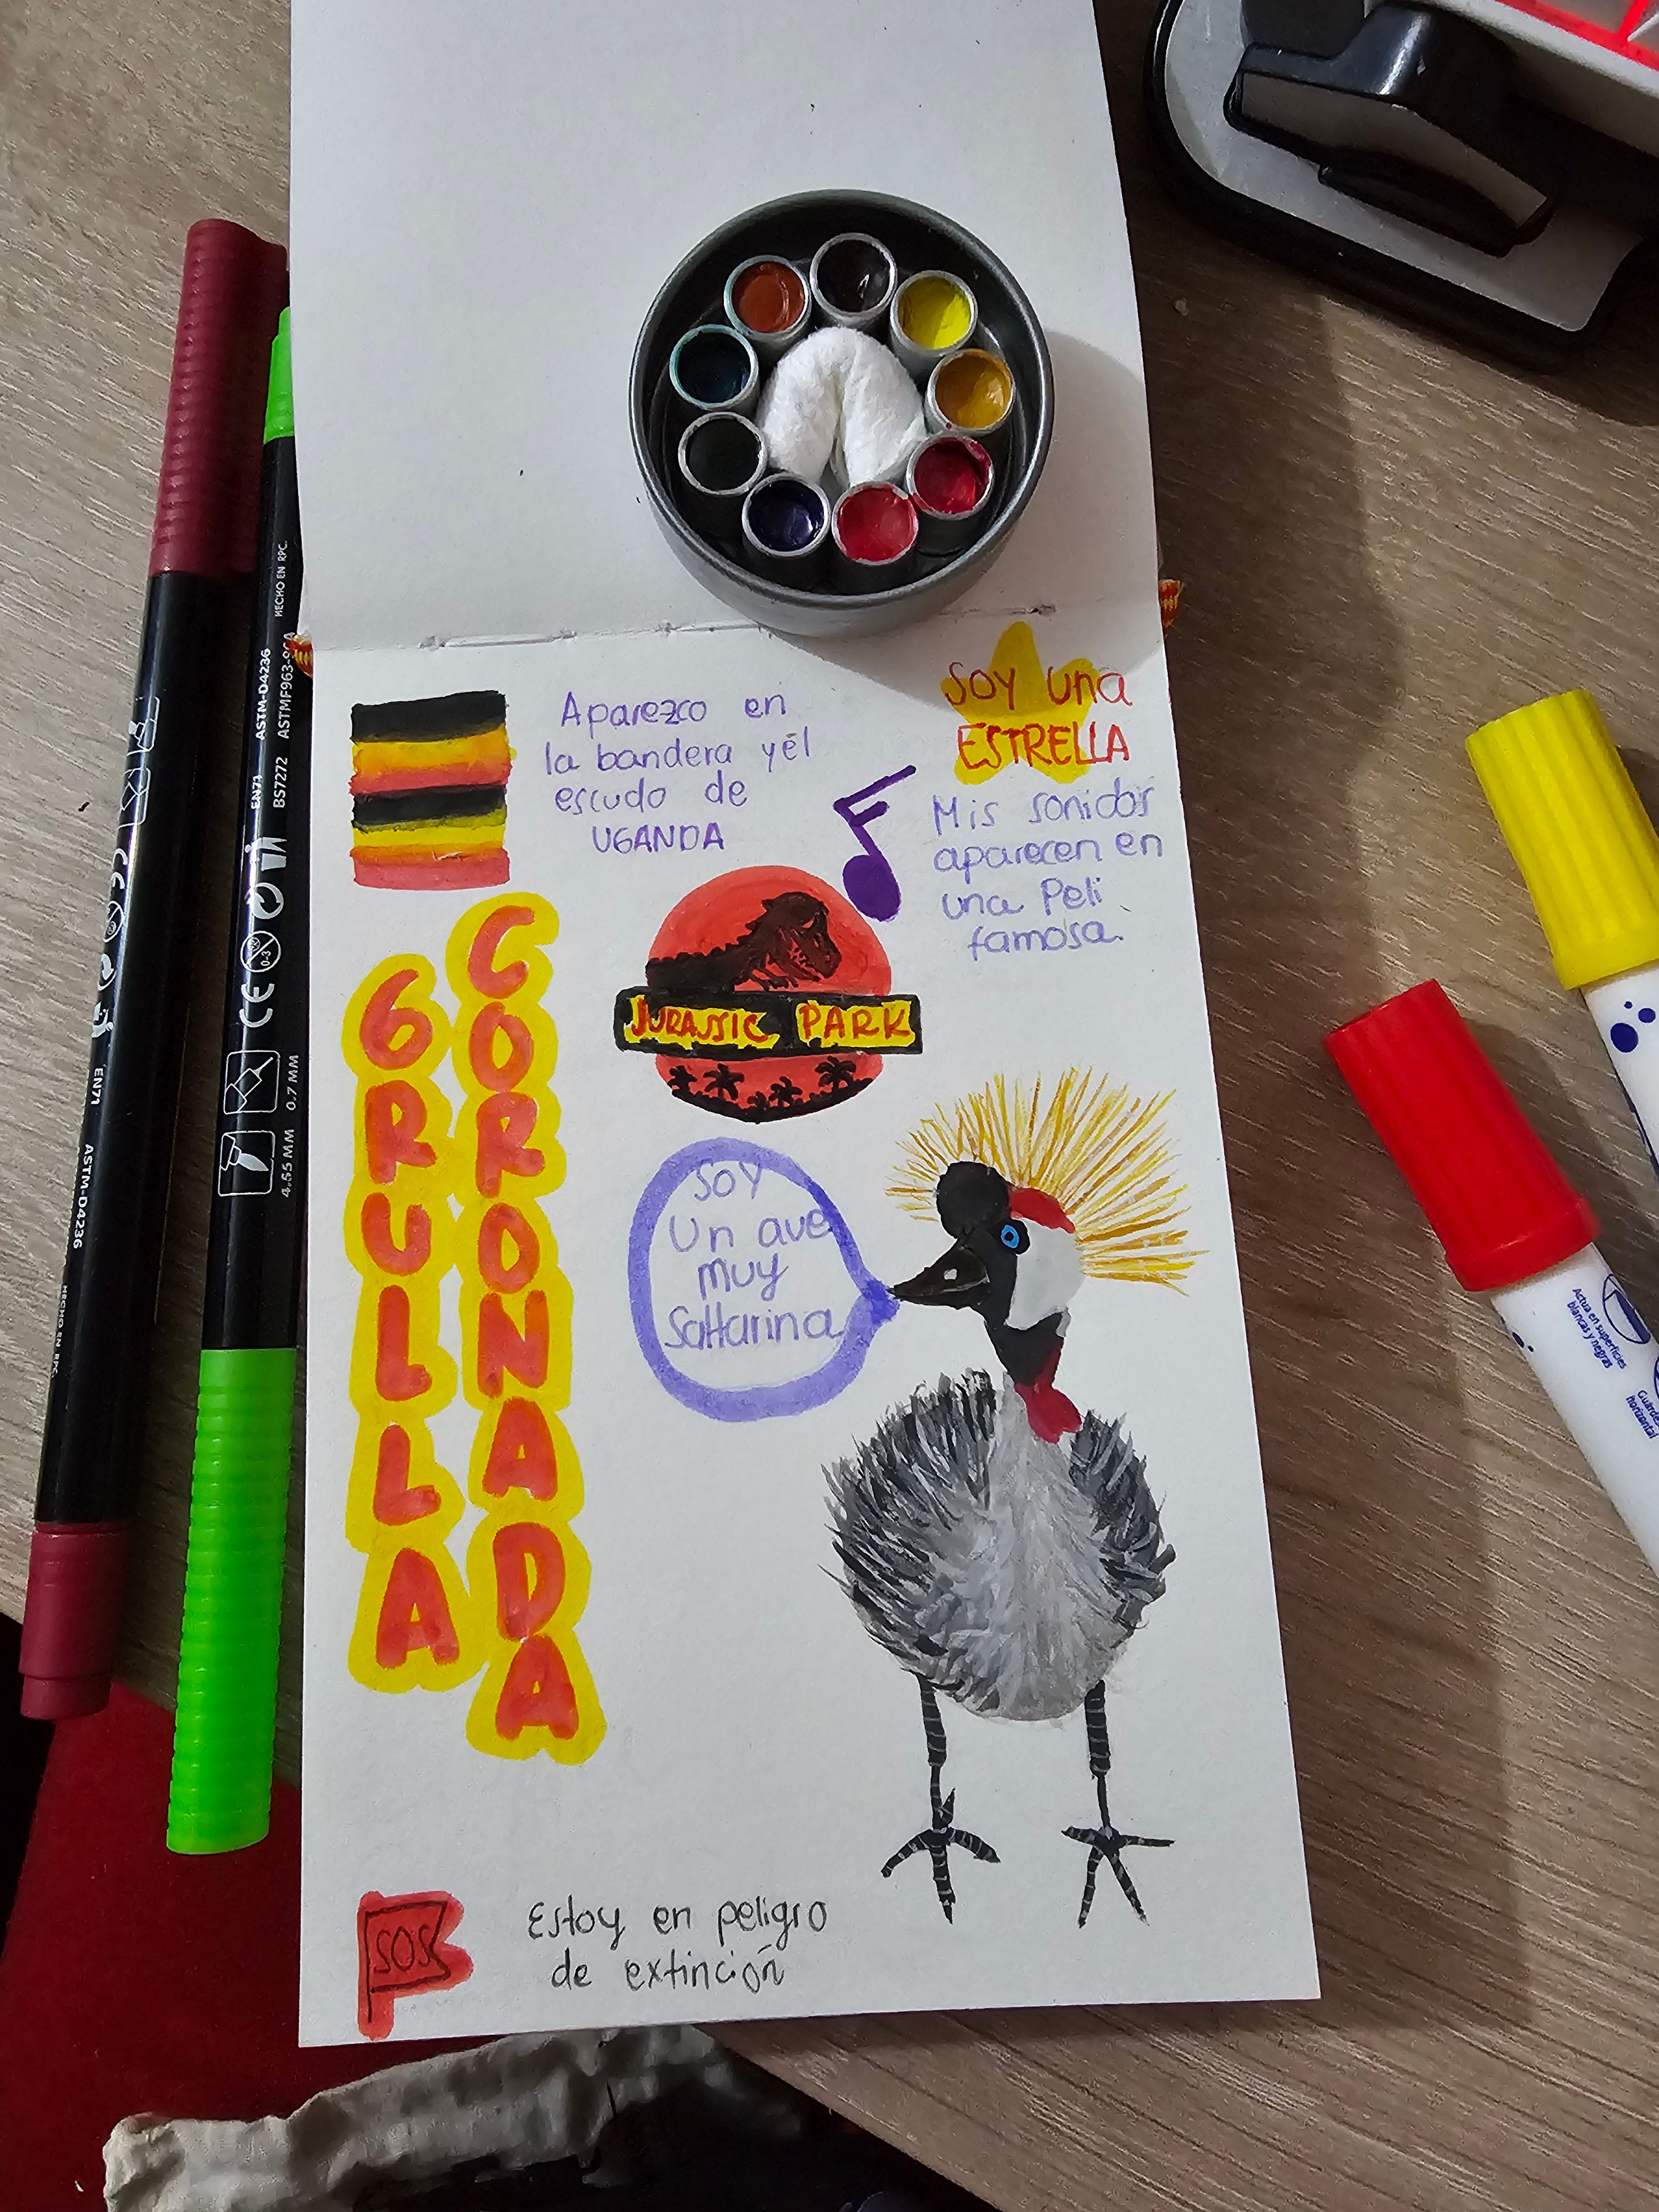 Aparezco en
la bandera y él
escudo de
UGANDA
SOY una
ESTRELLA
Mis sonidos
aparecen en
una Peli
famosa.
JURASSIC PARK
GRULLA
CORONADA
SOY
Un ave
muy
Saltarina
SOS
Estoy en peligro
de extinción
ASTM-D4236
EN71
HECHO EN RPC.
ASTM-D4236
EN71
BS7272
CE
0-3
0.7 MM
4.55 MM
Actua en superficies
blancas y negras
horizontal